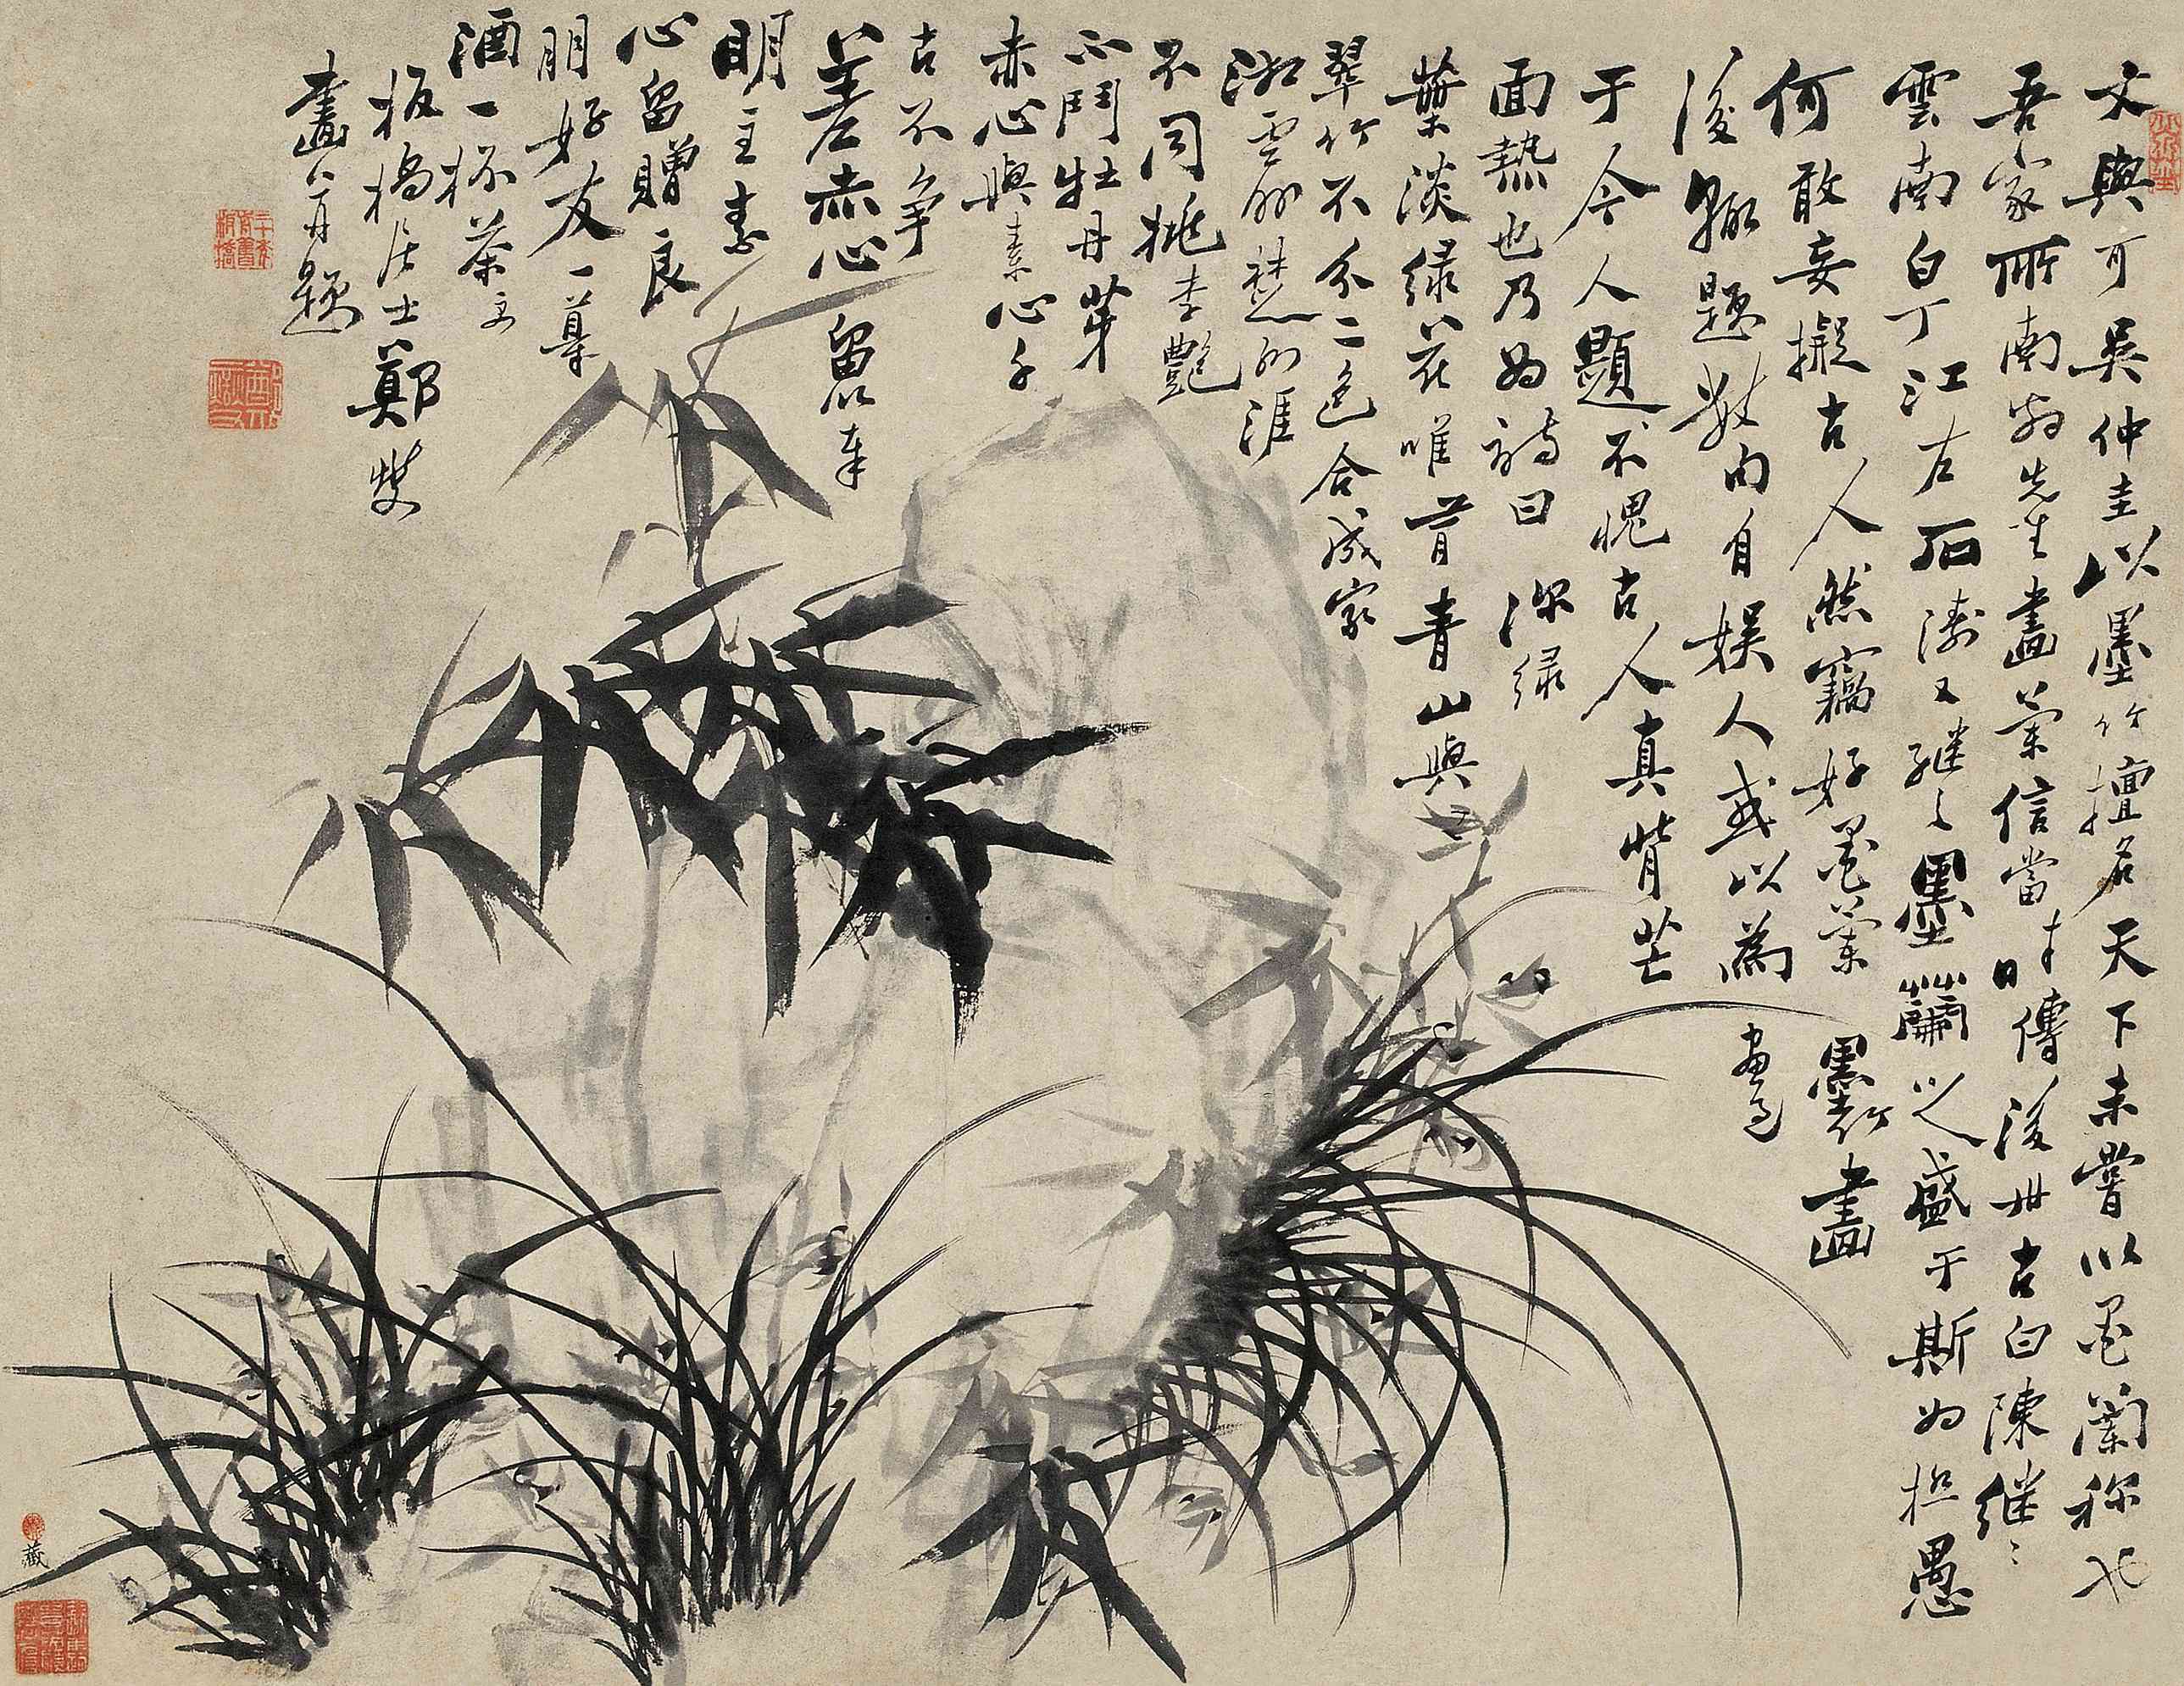 文與可吳仲圭以墨竹擅名天下未嘗以墨蘭稱也
吾家所南翁先生畫蘭信當時傳後世古白陳繼之
雲南白丁江左石濤又繼之墨蘭以之盛于斯為極愚
何敢妄擬古人然竊好墨蘭墨竹畫
後輒題數句自娛人或以為畫過
于今人題不愧古人真背芒
面熱也乃為詩曰 深綠
葉淡綠花唯首青山與
翠竹不分二色合成家
湘雲外楚外涯
不同桃李艷
不鬥牡丹芽
赤心與素心千
古不爭差赤心留以奉
明主素
心留贈良
朋好友一尊
酒一杯茶
板橋居士鄭燮
畫并題